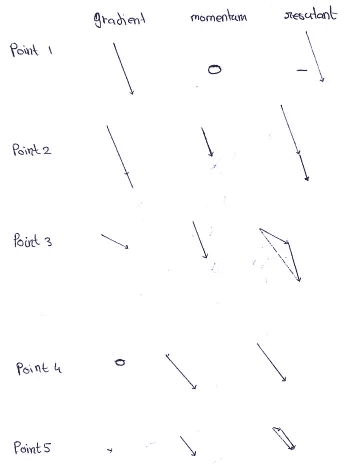 gradient momentum resultant
Point 1
Point 2
Point 3
Point 4
Point 5